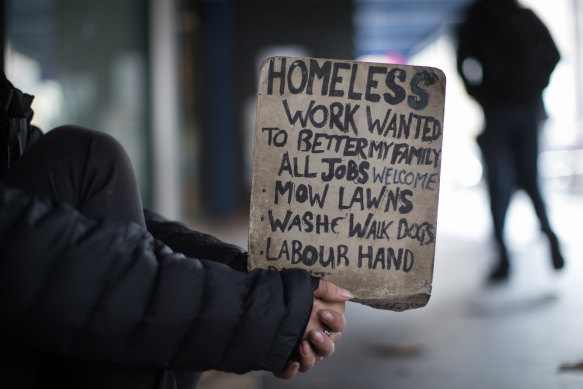 HOMELESS
WORK WANTED
TO BETTER MY FAMILY
ALL JOBS WELCOME
MOW LAWNS
WASH & WALK DOGS
LABOUR HAND